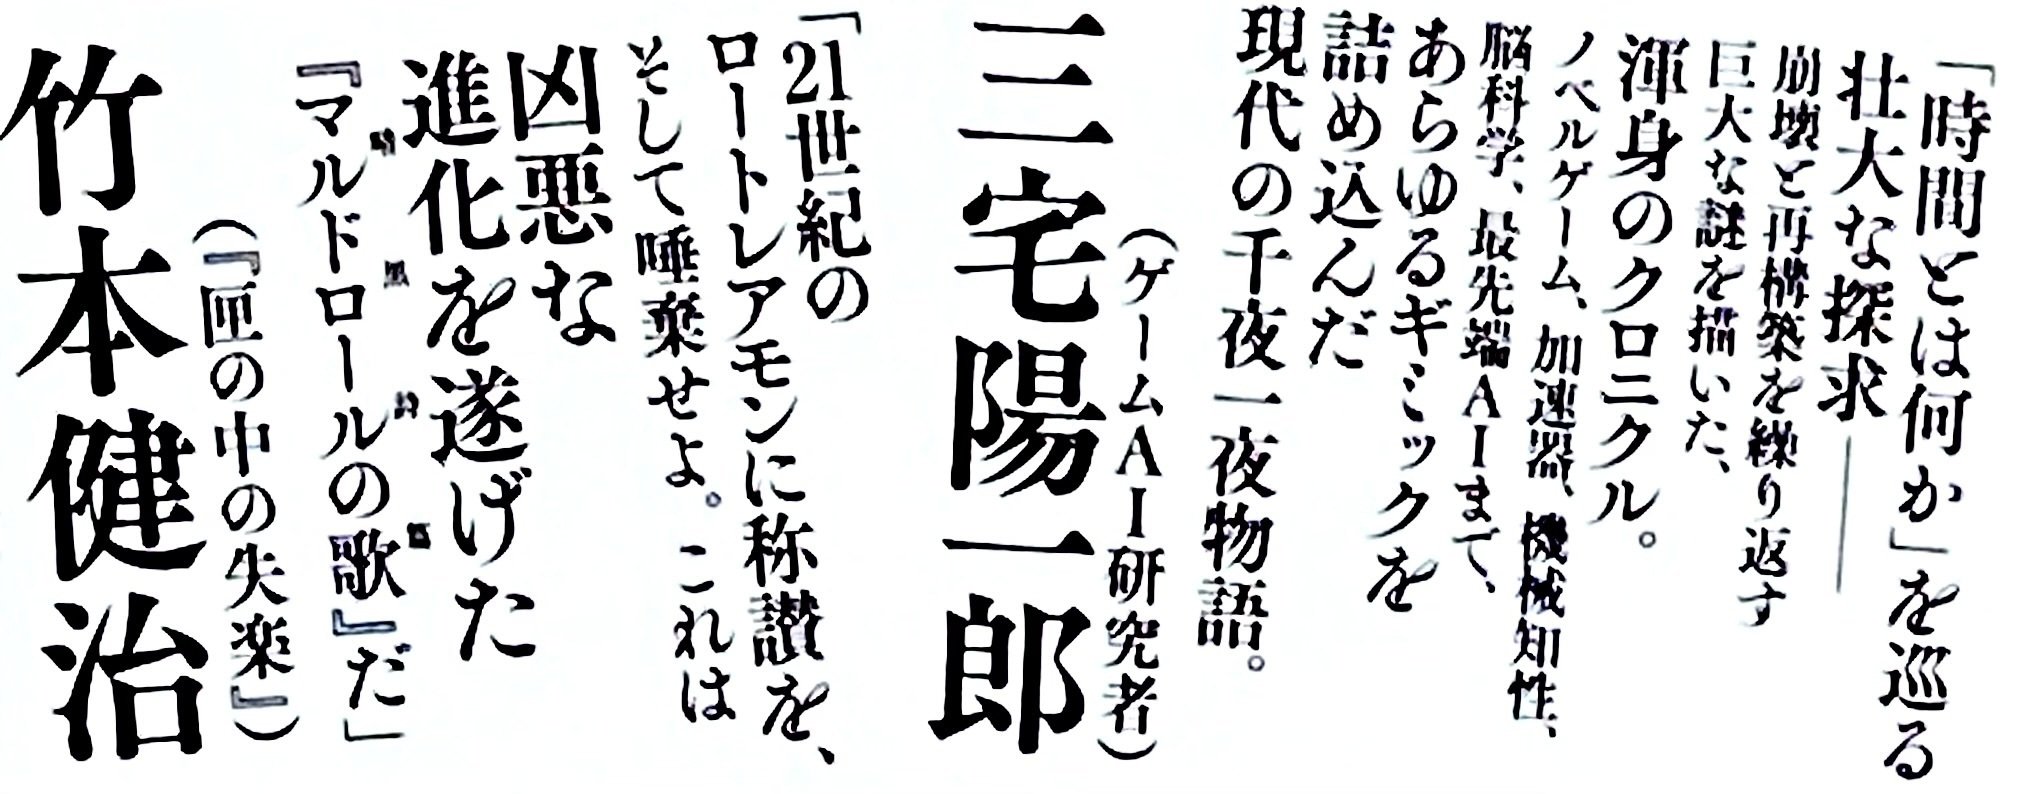 「時間とは何か」を巡る
壮大な探求――
崩壊と再構築を繰り返す
巨大な謎を描いた、
渾身のクロニクル。
ノベルゲーム、加速器、機械知性、
脳科学、最先端AIまで、
あらゆるギミックを
詰め込んだ
現代の千夜一夜物語。
(ゲームAI研究者)
三宅陽一郎
「21世紀の
ロートレアモンに称讃を、
そして唾棄せよ。これは
凶悪な
進化を遂げた
『マルドロールの歌』だ」
(『匣の中の失楽』)
竹本健治